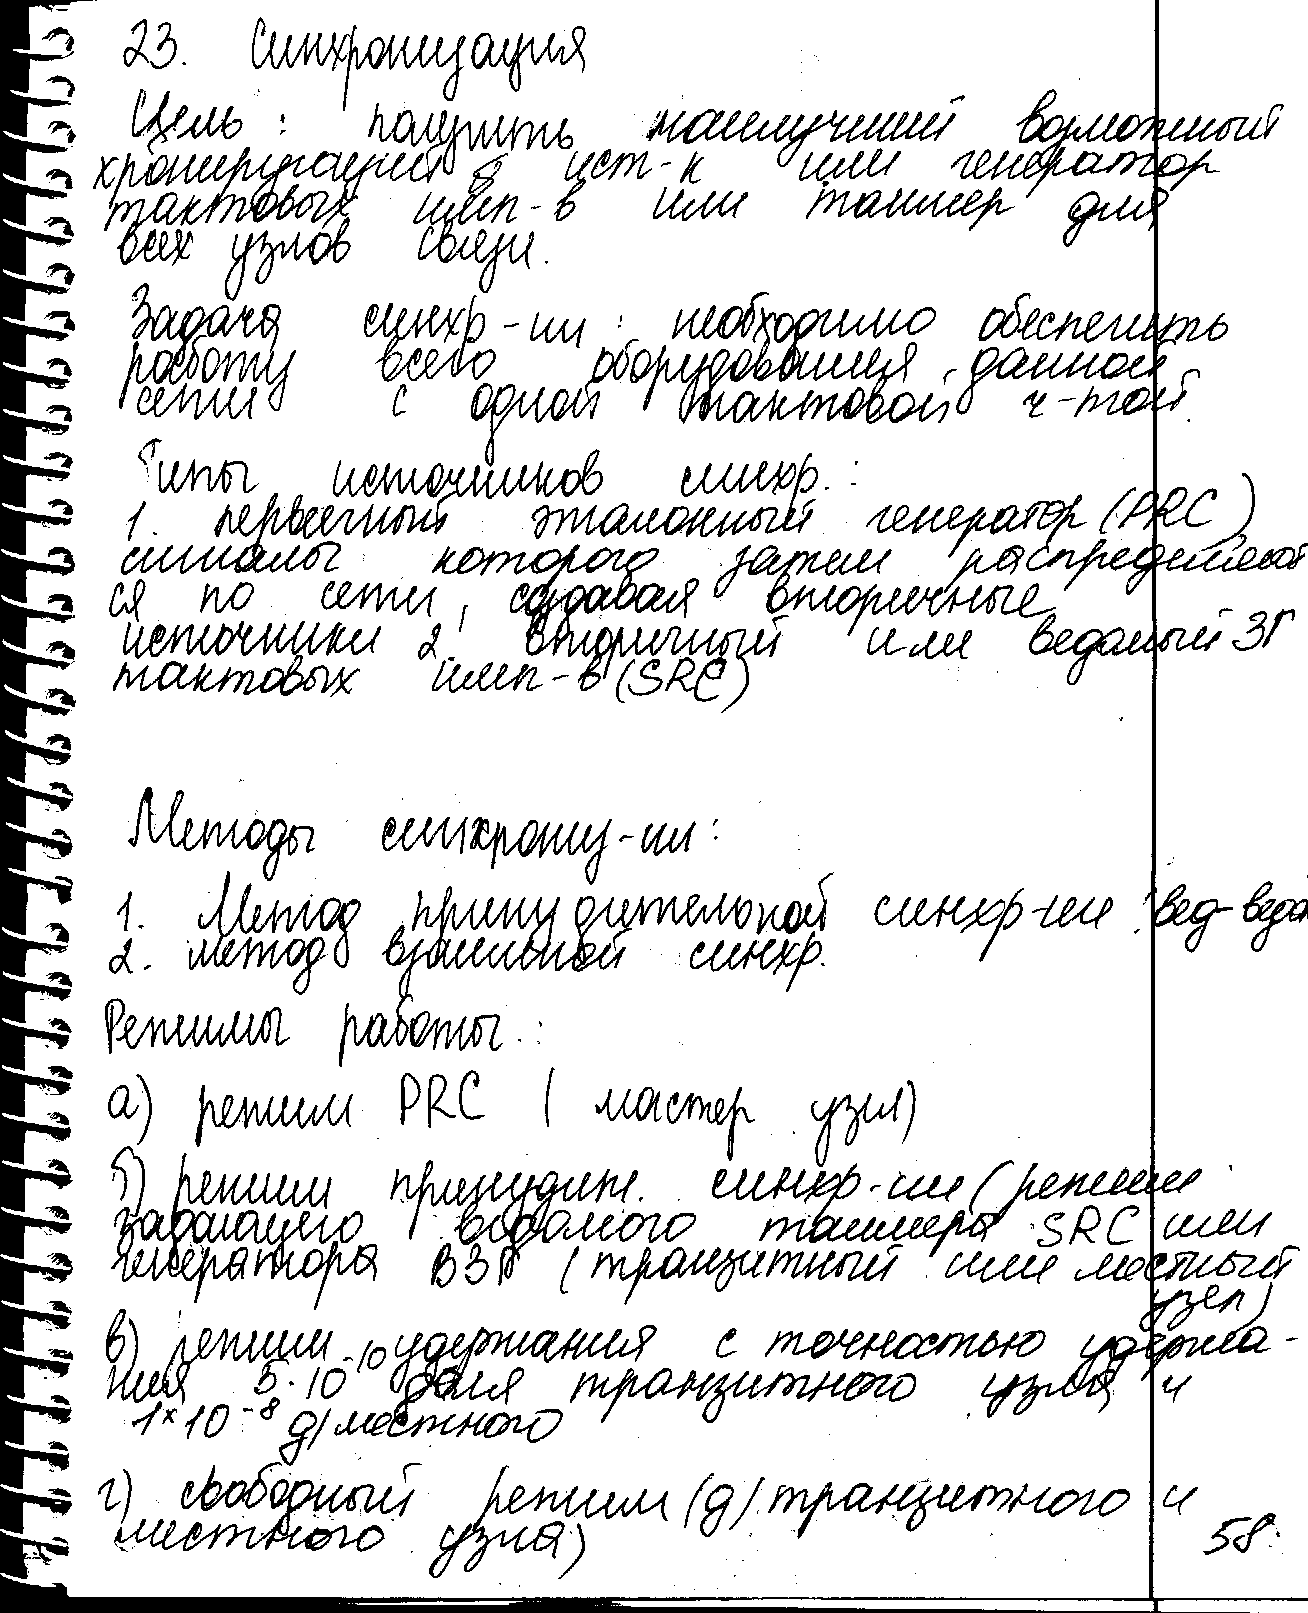 23. Синхронизация
Цель : получить наилучший возможный
хронирующий ист-к или генератор
тактовых имп-в или таймер для
всех узлов связи.
Задача синхр-ии : необходимо обеспечить
работу всего оборудования данной
сети с одной тактовой ч-той.
Типы источников синхр. :
1. первичный эталонный генератор (PRC)
сигналы которого затем распределяют
ся по сети, создавая вторичные
источники 2. вторичный или ведомый ЗГ
тактовых имп-в (SRC)
Методы синхрониз-ии :
1. Метод принудительной синхр-ии : вед-ведо
2. метод взаимной синхр.
Режимы работы :
а) режим PRC ( мастер узел)
б) режим принудит. синхр-ии (режим
задающего ведомого таймера SRC или
генератора ВЗГ (транзитный или местный
узел)
в) режим удержания с точностью удержа-
ния 5·10⁻¹⁰ для транзитного узла и
1×10⁻⁸ д/местного
г) свободный режим (д/транзитного и
местного узла)
58